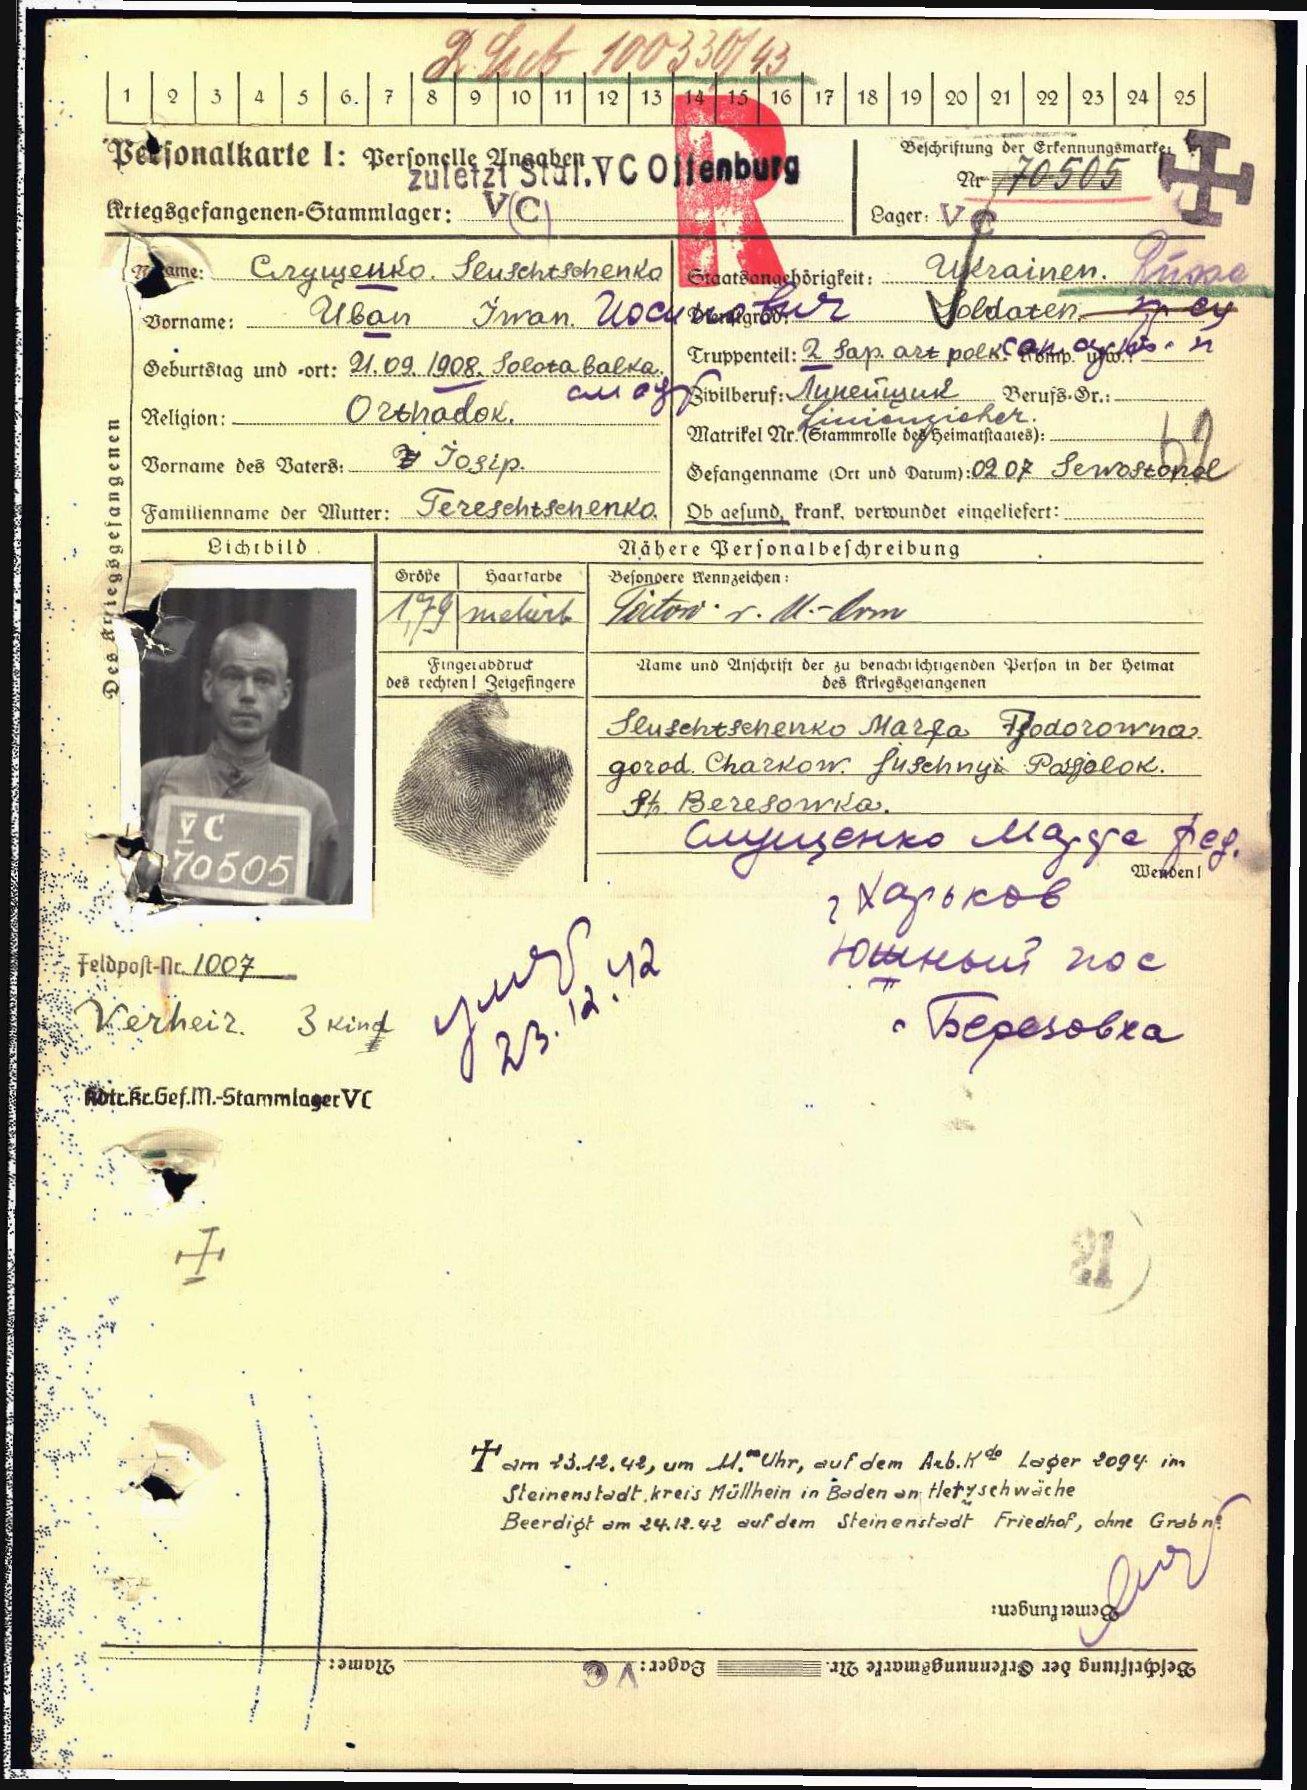 100330/43
1 2 3 4 5 6. 7 8 9 10 11 12 13 14 15 16 17 18 19 20 21 22 23 24 25
R
Personalkarte I: Personelle Angaben
zuletzt Stal. V C Offenburg
Kriegsgefangenen-Stammlager: V (C)
Beschriftung der Erkennungsmarke:
Nr 70505
Lager: V C
Des Kriegsgefangenen
Name: Слущенко. Sluschtschenko
Vorname: Иван Iwan. Иосипович
Geburtstag und -ort: 21.09.1908. Solota balka.
Religion: Orthadok.
Vorname des Vaters: Iosip.
Familienname der Mutter: Tereschtschenko.
Staatsangehörigkeit: Ukrainen. Russe
Dienstgrad: Soldaten.
Truppenteil: 2 Sap. art polk. Komp. usw.:
Zivilberuf: Линейщик Berufs-Gr.:
Linienzieher.
Matrikel Nr. (Stammrolle des Heimatstaates):
Gefangenname (Ort und Datum): 02 07 Sewostopol
Ob gesund, krank, verwundet eingeliefert:
Lichtbild
Nähere Personalbeschreibung
Größe Haarfarbe Besondere Kennzeichen:
1,79 meliert
Fingerabdruck
des rechten! Zeigefingers
Name und Anschrift der zu benachrichtigenden Person in der Heimat
des Kriegsgefangenen
Sluschtschenko Marfa Fjodorowna.
gorod. Charkow. Juschnyi Posjolok.
St. Beresowka.
Слущенко Марфа Фед.
Wenden!
г Харьков
Южный пос
с Березовка
V C
70505
Feldpost-Nr. 1007
Verheir. 3 kind
умер
23.12.42
Kdtr.Kr.Gef.M.-Stammlager V C
21
✝ am 23.12.42, um 11.⁰⁰ Uhr, auf dem Arb.Kdo Lager 2094 im
Steinenstadt, kreis Müllhein in Baden an Hetzschwäche
Beerdigt am 24.12.42 auf dem Steinenstadt Friedhof, ohne Grabn.
Bemerkungen:
Beschriftung der Erkennungsmarke Nr. Lager: V C Name: